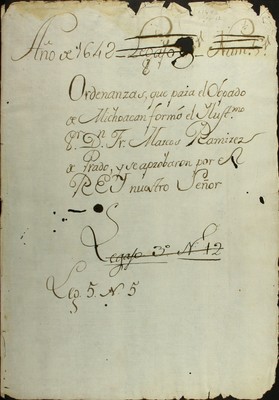 Año de 1642 Legajo 3º Num. 9.
Ordenanzas, que para el Obpado
de Michoacan formó el Illust.mo
Sr. D. Fr. Marcos Ramirez
de Prado, y se aprobaron por el
REY nuestro Señor
Legajo 3º N. 12
Leg. 5. N. 5